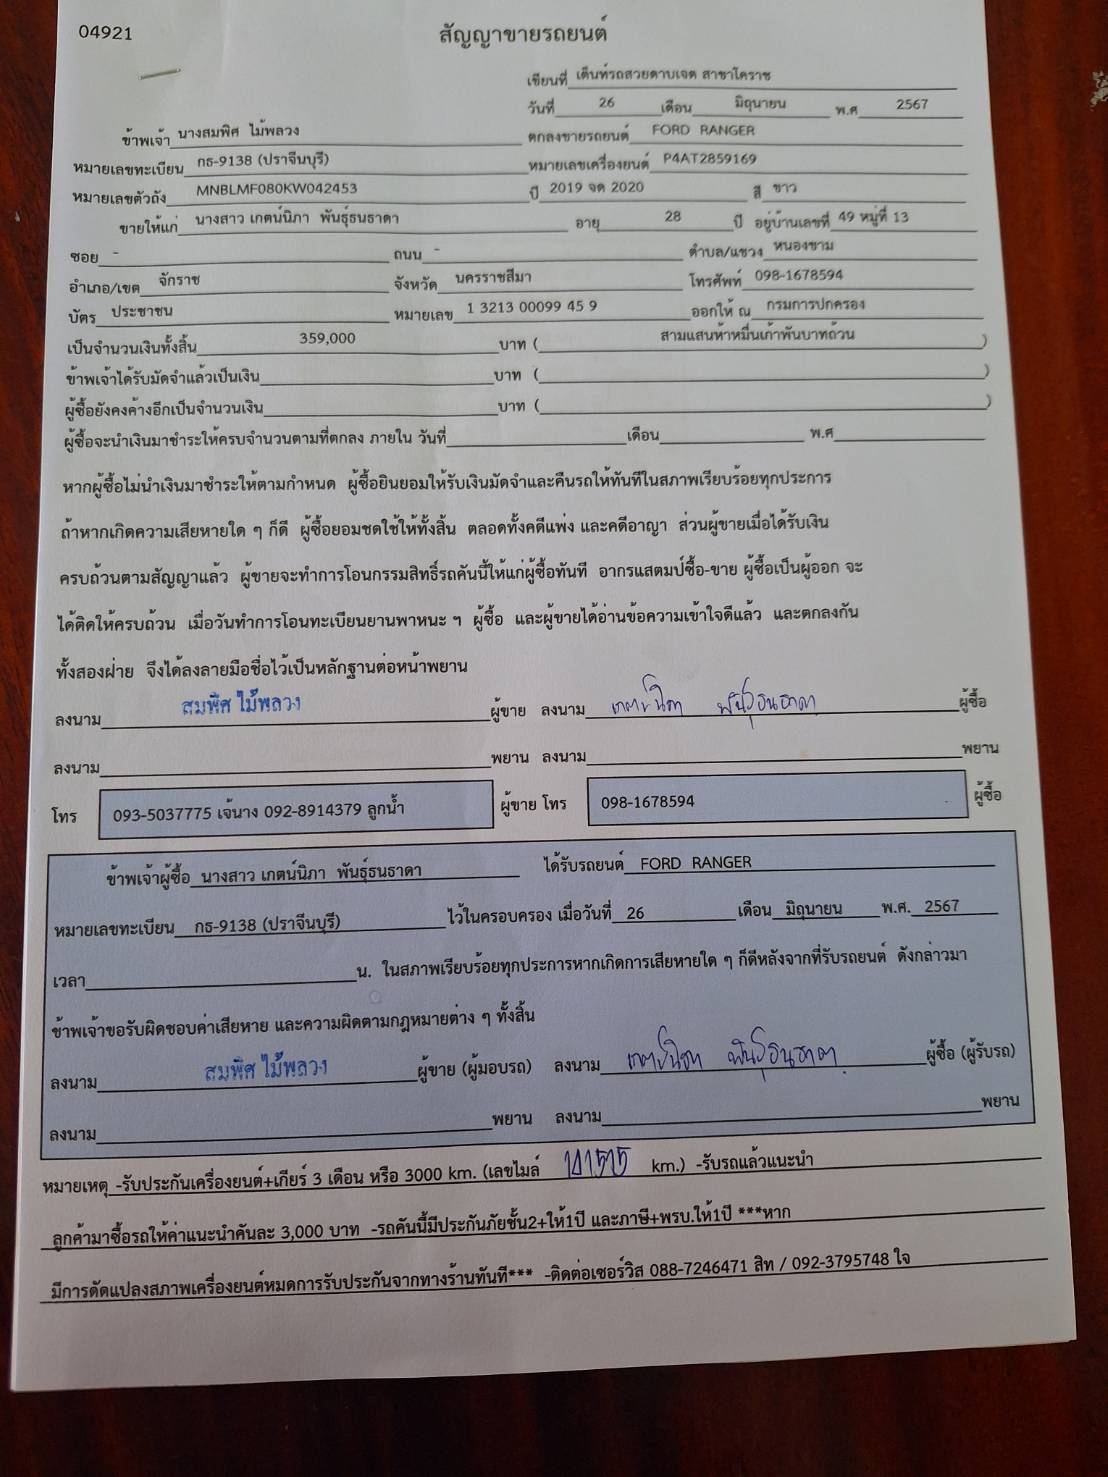 04921
สัญญาขายรถยนต์
เขียนที่ เต็นท์รถสวยดาบเจต สาขาโคราช
วันที่ 26 เดือน มิถุนายน พ.ศ 2567
ข้าพเจ้า นางสมพิศ ไม้พลวง ตกลงขายรถยนต์ FORD RANGER
หมายเลขทะเบียน กธ-9138 (ปราจีนบุรี) หมายเลขเครื่องยนต์ P4AT2859169
หมายเลขตัวถัง MNBLMF080KW042453 ปี 2019 จด 2020 สี ขาว
ขายให้แก่ นางสาว เกตน์นิภา พันธุ์ธนธาดา อายุ 28 ปี อยู่บ้านเลขที่ 49 หมู่ที่ 13
ซอย - ถนน - ตำบล/แขวง หนองขาม
อำเภอ/เขต จักราช จังหวัด นครราชสีมา โทรศัพท์ 098-1678594
บัตร ประชาชน หมายเลข 1 3213 00099 45 9 ออกให้ ณ กรมการปกครอง
เป็นจำนวนเงินทั้งสิ้น 359,000 บาท ( สามแสนห้าหมื่นเก้าพันบาทถ้วน )
ข้าพเจ้าได้รับมัดจำแล้วเป็นเงิน บาท ( )
ผู้ซื้อยังคงค้างอีกเป็นจำนวนเงิน บาท ( )
ผู้ซื้อจะนำเงินมาชำระให้ครบจำนวนตามที่ตกลง ภายใน วันที่ เดือน พ.ศ
หากผู้ซื้อไม่นำเงินมาชำระให้ตามกำหนด ผู้ซื้อยินยอมให้รับเงินมัดจำและคืนรถให้ทันทีในสภาพเรียบร้อยทุกประการ
ถ้าหากเกิดความเสียหายใด ๆ ก็ดี ผู้ซื้อยอมชดใช้ให้ทั้งสิ้น ตลอดทั้งคดีแพ่ง และคดีอาญา ส่วนผู้ขายเมื่อได้รับเงิน
ครบถ้วนตามสัญญาแล้ว ผู้ขายจะทำการโอนกรรมสิทธิ์รถคันนี้ให้แก่ผู้ซื้อทันที อากรแสตมป์ซื้อ-ขาย ผู้ซื้อเป็นผู้ออก จะ
ได้ติดให้ครบถ้วน เมื่อวันทำการโอนทะเบียนยานพาหนะ ฯ ผู้ซื้อ และผู้ขายได้อ่านข้อความเข้าใจดีแล้ว และตกลงกัน
ทั้งสองฝ่าย จึงได้ลงลายมือชื่อไว้เป็นหลักฐานต่อหน้าพยาน
ลงนาม สมพิศ ไม้พลวง ผู้ขาย ลงนาม เกตน์นิภา พันธุ์ธนธาดา ผู้ซื้อ
ลงนาม พยาน ลงนาม พยาน
โทร 093-5037775 เจ้นาง 092-8914379 ลูกน้ำ ผู้ขาย โทร 098-1678594 ผู้ซื้อ
ข้าพเจ้าผู้ซื้อ นางสาว เกตน์นิภา พันธุ์ธนธาดา ได้รับรถยนต์ FORD RANGER
หมายเลขทะเบียน กธ-9138 (ปราจีนบุรี) ไว้ในครอบครอง เมื่อวันที่ 26 เดือน มิถุนายน พ.ศ. 2567
เวลา น. ในสภาพเรียบร้อยทุกประการหากเกิดการเสียหายใด ๆ ก็ดีหลังจากที่รับรถยนต์ ดังกล่าวมา
ข้าพเจ้าขอรับผิดชอบค่าเสียหาย และความผิดตามกฎหมายต่าง ๆ ทั้งสิ้น
ลงนาม สมพิศ ไม้พลวง ผู้ขาย (ผู้มอบรถ) ลงนาม เกตน์นิภา พันธุ์ธนธาดา ผู้ซื้อ (ผู้รับรถ)
ลงนาม พยาน ลงนาม พยาน
หมายเหตุ -รับประกันเครื่องยนต์+เกียร์ 3 เดือน หรือ 3000 km. (เลขไมล์ 141515 km.) -รับรถแล้วแนะนำ
ลูกค้ามาซื้อรถให้ค่าแนะนำคันละ 3,000 บาท -รถคันนี้มีประกันภัยชั้น2+ให้1ปี และภาษี+พรบ.ให้1ปี ***หาก
มีการดัดแปลงสภาพเครื่องยนต์หมดการรับประกันจากทางร้านทันที*** -ติดต่อเซอร์วิส 088-7246471 สิท / 092-3795748 ใจ